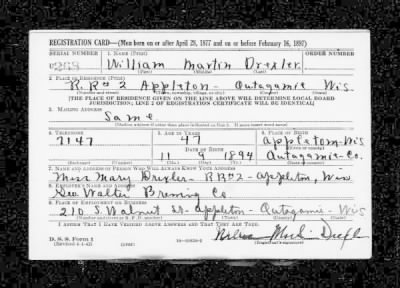 REGISTRATION CARD—(Men born on or after April 28, 1877 and on or before February 16, 1897)
SERIAL NUMBER 1. NAME (Print) ORDER NUMBER
U 268 William Martin Drexler
(First) (Middle) (Last)
2. PLACE OF RESIDENCE (Print)
R. R # 2 Appleton - Outagamie Wis.
(Number and street) (Town, township, village, or city) (County) (State)
[THE PLACE OF RESIDENCE GIVEN ON THE LINE ABOVE WILL DETERMINE LOCAL BOARD
JURISDICTION; LINE 2 OF REGISTRATION CERTIFICATE WILL BE IDENTICAL]
3. MAILING ADDRESS
Same
[Mailing address if other than place indicated on line 2. If same insert word same]
4. TELEPHONE 5. AGE IN YEARS 6. PLACE OF BIRTH
7147 47 Appleton-Wis
DATE OF BIRTH
11 9 1894 Outagamie-Co.
(Exchange) (Number) (Mo.) (Day) (Yr.) (State or country)
7. NAME AND ADDRESS OF PERSON WHO WILL ALWAYS KNOW YOUR ADDRESS
Miss Mary Drexler - R R # 2 - Appleton, Wis
8. EMPLOYER'S NAME AND ADDRESS
Geo Walter Brewing Co.
9. PLACE OF EMPLOYMENT OR BUSINESS
210 S. Walnut St - Appleton - Outagamie - Wis
(Number and street or R. F. D. number) (Town) (County) (State)
I AFFIRM THAT I HAVE VERIFIED ABOVE ANSWERS AND THAT THEY ARE TRUE.
D. S. S. Form 1
(Revised 4-1-42) (over) (Registrant's signature)